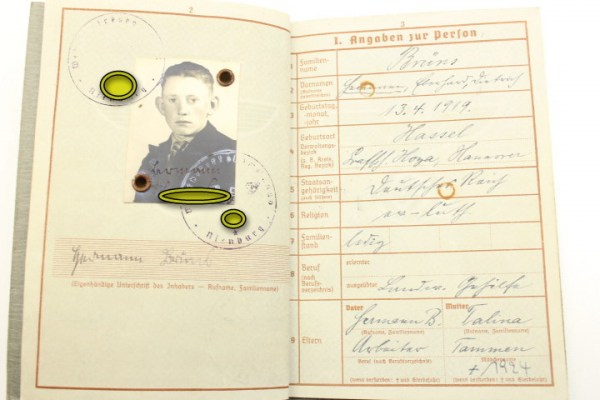 2
Nienburg
Hermann Brüns
(Eigenhändige Unterschrift des Inhabers — Rufname, Familienname)
3
I. Angaben zur Person
1 Familien-
name
Brüns
2 Vornamen
(Rufname
unterstreichen)
Hermann, Eberhard, Dietrich
3 Geburtstag,
-monat,
-jahr
13. 4. 1919.
4 Geburtsort
Verwaltungs-
bezirk
(z. B. Kreis,
Reg. Bezirk)
Hassel
Grafsch. Hoya, Hannover
5 Staatsan-
gehörigkeit
(auch frühere)
Deutsches Reich
6 Religion
ev-luth
7 Familien-
stand
ledig
8 Beruf
(nach
Berufs-
verzeichnis)
erlernter
ausgeübter
Landw. Gehilfe
9 Eltern
Vater
Mutter
Hermann B.
Talina
(Rufname, Familienname)
(Rufname, Familienname)
Arbeiter
Tammen
Beruf (nach Berufsverzeichnis)
+ 1924
(wenn verstorben: † und Sterbejahr)
(wenn verstorben: † und Sterbejahr)